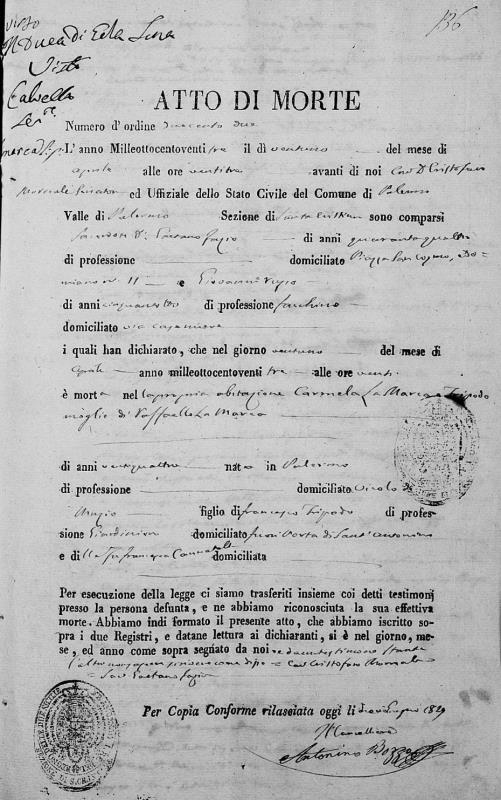 136
visto
Il Duca di
Visto
Calvello
ATTO DI MORTE
Numero d' ordine duecento due
L' anno Milleottocentoventi tre il dì ventuno del mese di
aprile alle ore ventitre avanti di noi Cav. D. Cristofaro
ed Uffiziale dello Stato Civile del Comune di Palermo
Valle di Palermo Sezione di Santa Cristina sono comparsi
Gaetano Fazio di anni quarantaquattro
di professione domiciliato Piazza San Cosmo, e Do-
miano n. 11 e Giovanni
di anni di professione facchino
domiciliato via
i quali han dichiarato, che nel giorno ventuno del mese di
Aprile anno milleottocentoventi tre alle ore venti
è morta nella propria abitazione Carmela La Marca e Tripodo
moglie di Raffaele La Marca
di anni ventiquattro nata in Palermo
di professione domiciliata vicolo
figlio di Francesco Tripodo di profes-
sione Giardiniere domiciliato fuori Porta di Sant' Antonino
e di lla fu Francesca domiciliata
Per esecuzione della legge ci siamo trasferiti insieme coi detti testimonj
presso la persona defunta, e ne abbiamo riconosciuta la sua effettiva
morte. Abbiamo indi formato il presente atto, che abbiamo iscritto so-
pra i due Registri, e datane lettura ai dichiaranti, si è nel giorno, me-
se, ed anno come sopra segnato da noi e da un testimonio stante
l'altro non sapere scrivere come disse = Cav. Cristofaro
= Gaetano Fazio
Per Copia Conforme rilasciata oggi li 1829
Il Cancelliere
Antonino Bozzo